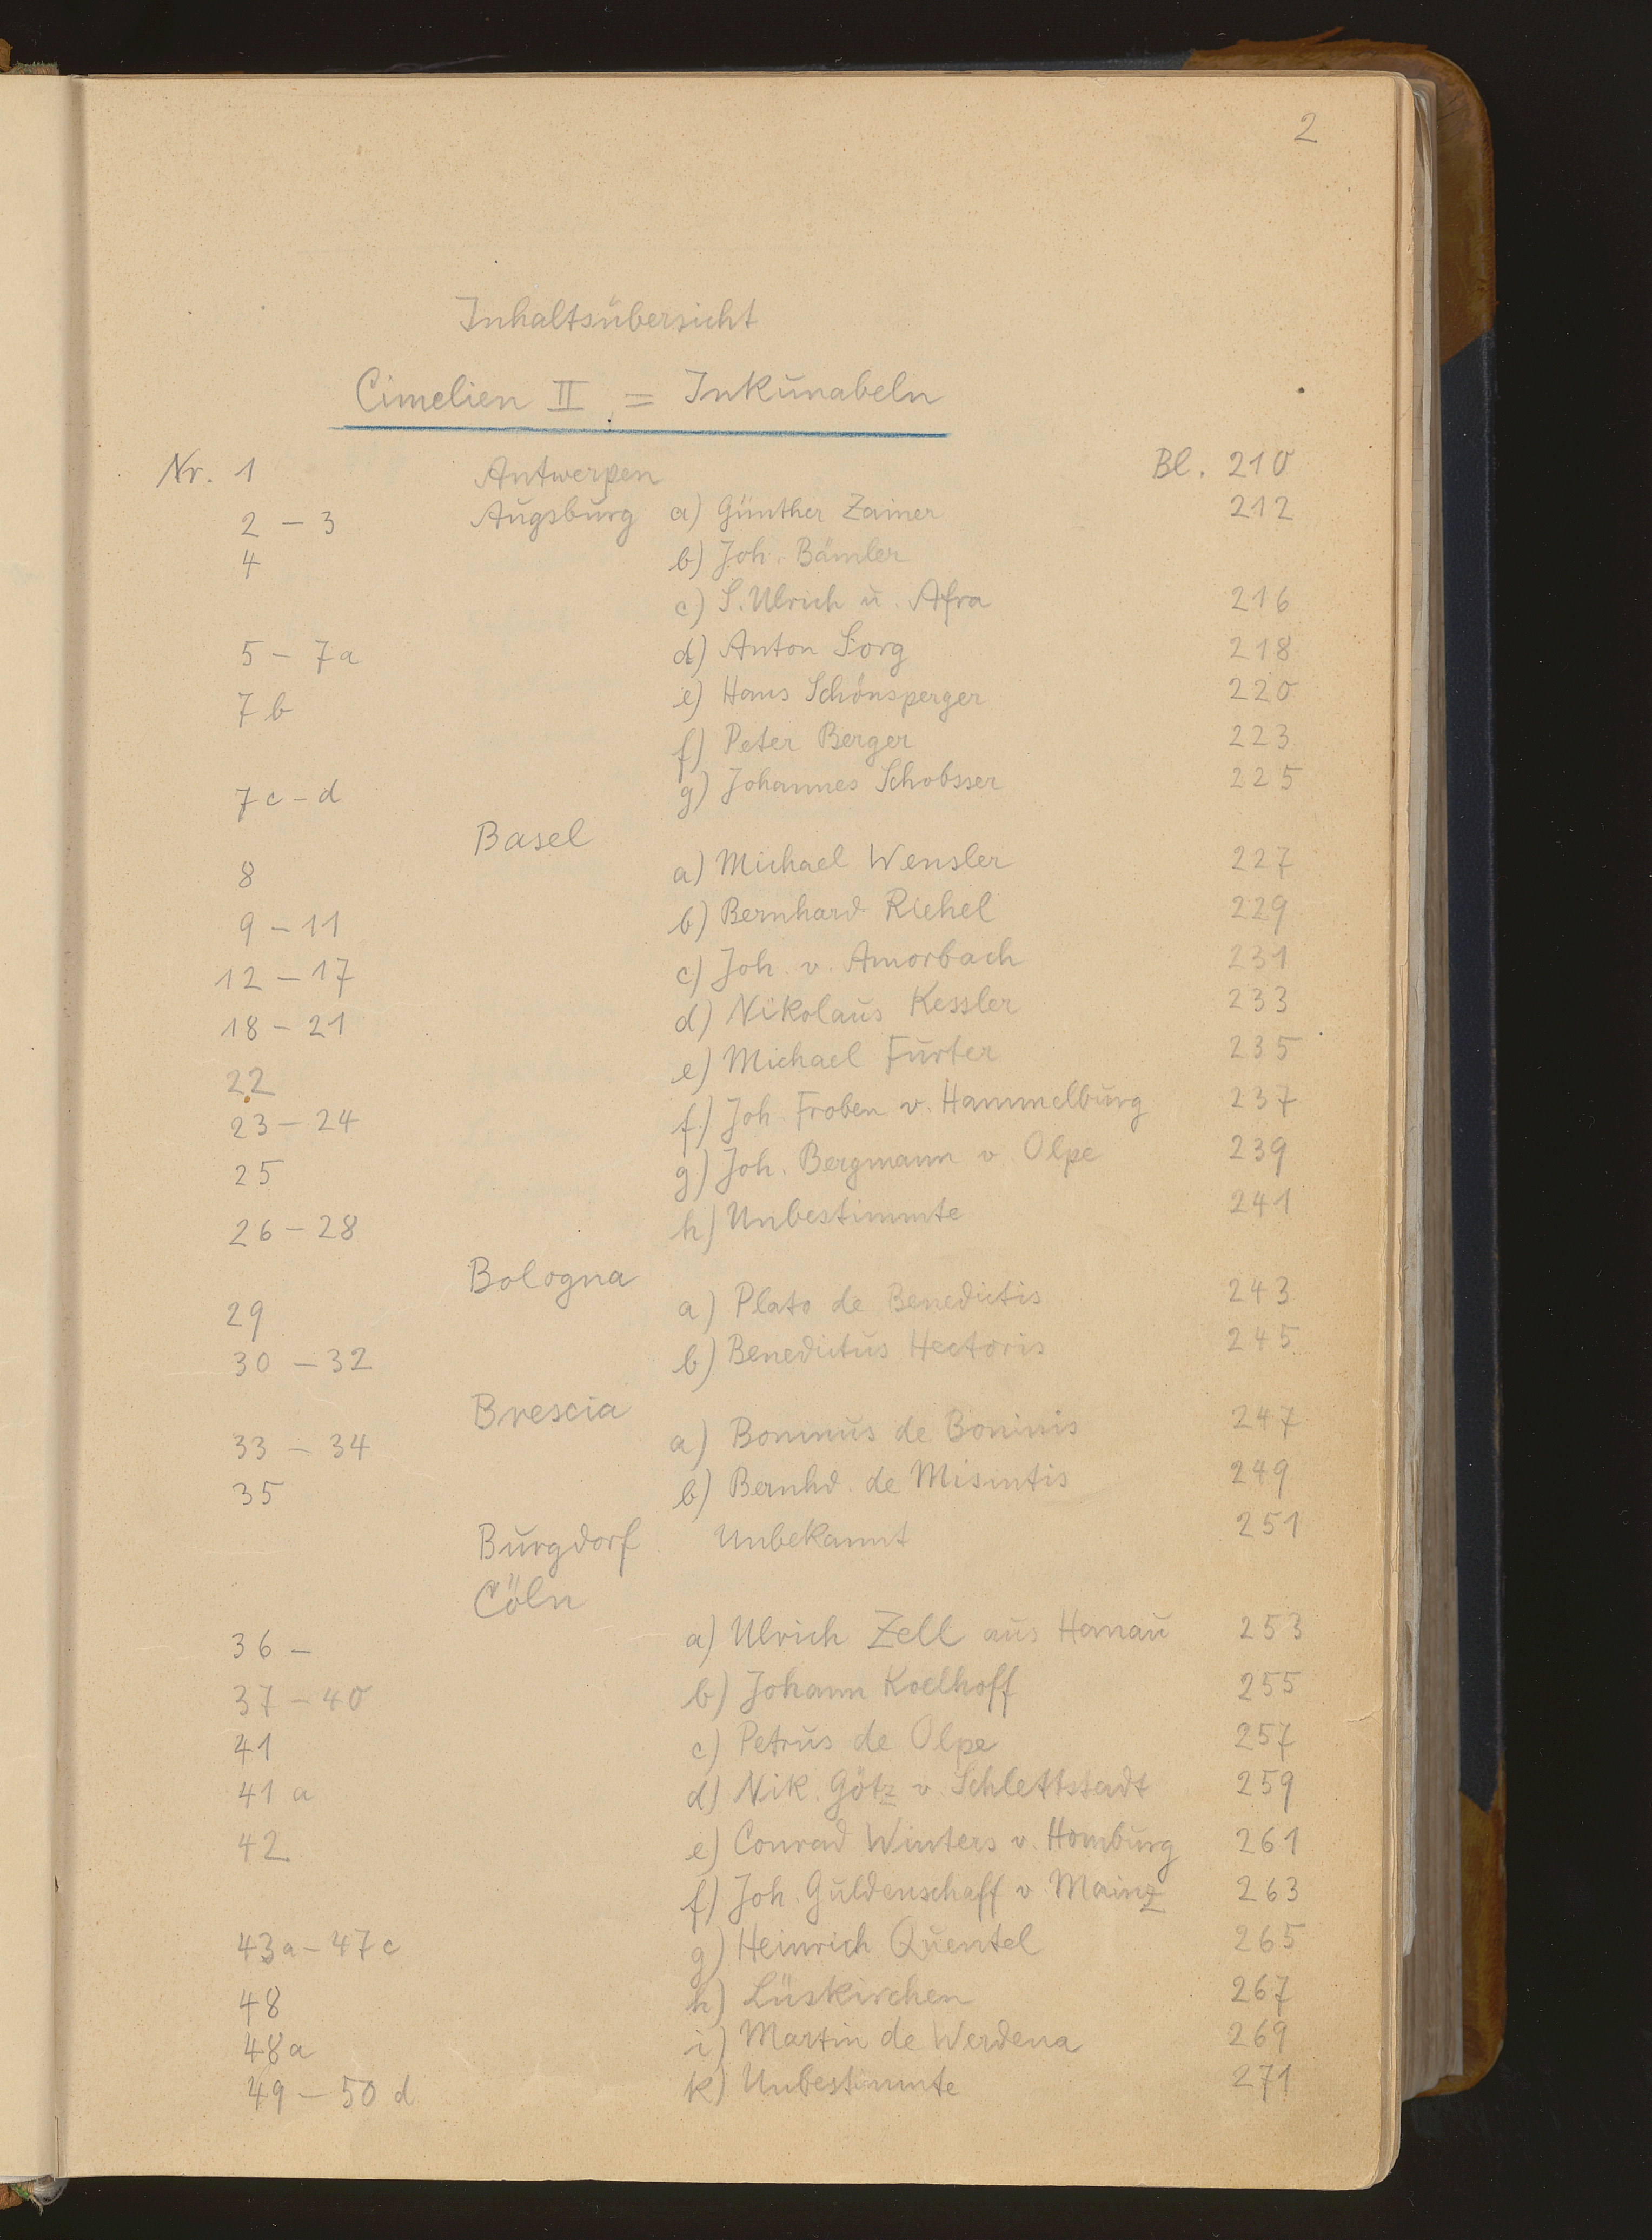 2
Inhaltsübersicht
Cimelien II = Inkunabeln
Nr. 1 Antwerpen Bl. 210
2 – 3 Augsburg a) Günther Zainer 212
4 b) Joh. Bämler
c) S. Ulrich u. Afra 216
5 – 7a d) Anton Sorg 218
7b e) Hans Schönsperger 220
f) Peter Berger 223
7c – d g) Johannes Schobsser 225
Basel
8 a) Michael Wensler 227
9 – 11 b) Bernhard Richel 229
12 – 17 c) Joh. v. Amorbach 231
18 – 21 d) Nikolaus Kessler 233
22 e) Michael Furter 235
23 – 24 f) Joh. Froben v. Hammelburg 237
25 g) Joh. Bergmann v. Olpe 239
26 – 28 h) Unbestimmte 241
Bologna
29 a) Plato de Benedictis 243
30 – 32 b) Benedictus Hectoris 245
Brescia
33 – 34 a) Boninus de Boninis 247
35 b) Bernhd. de Misintis 249
Burgdorf Unbekannt 251
Cöln
36 – a) Ulrich Zell aus Hanau 253
37 – 40 b) Johann Koelhoff 255
41 c) Petrus de Olpe 257
41 a d) Nik. Götz v. Schlettstadt 259
42 e) Conrad Winters v. Homburg 261
f) Joh. Guldenschaff v. Mainz 263
43a – 47c g) Heinrich Quentel 265
48 h) Lüskirchen 267
48a i) Martin de Werdena 269
49 – 50 d k) Unbestimmte 271